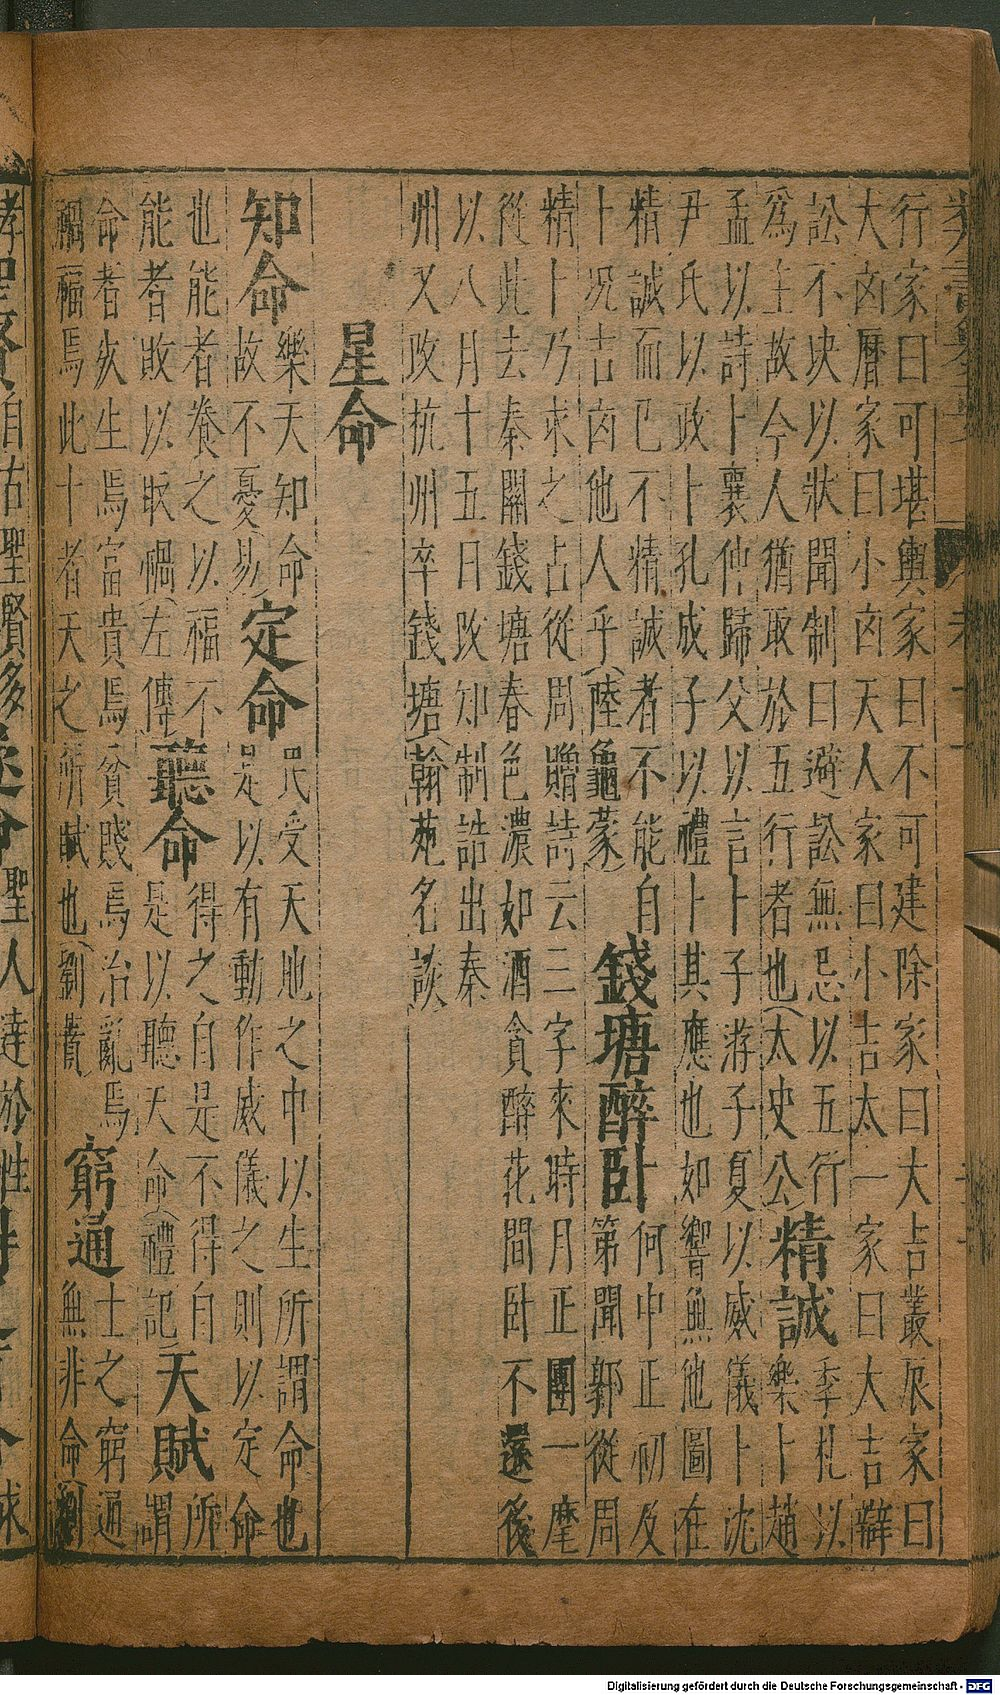 行家曰可堪輿家曰不可建除家曰大吉叢辰家曰
大凶曆家曰小凶天人家曰小吉太一家曰大吉辯
訟不决以狀聞制曰避訟無忌以五行
爲主故今人猶取於五行者也(太史公)
精誠
季札以
樂卜趙
孟以詩卜襄仲歸父以言卜子游子夏以威儀卜沈
尹氏以政卜孔成子以禮卜其應也如響無他圖在
精誠而已不精誠者不能自
卜况吉凶他人乎(陸龜蒙)
錢塘醉卧
何中正初及
第聞郭從周
精卜乃求之占從周贈詩云三字來時月正團一麾
從此去秦關錢塘春色濃如酒貪醉花間卧不還後
以八月十五日改知制誥出秦
州又改杭州卒錢塘(翰苑名談
星命
知命
樂天知命
故不憂(易)
定命
民受天地之中以生所謂命也
是以有動作威儀之則以定命
也能者養之以福不
能者敗以取禍(左傳)
聽命
得之自是不得自
是以聽天命(禮記
天賦
所
謂
命者灰生焉富貴焉貧賤焉治亂焉
禍福焉此十者天之所賦也(劉蕡)
窮通
士之窮通
無非命
自古聖賢多
聖人達於性
Digitalisierung gefördert durch die Deutsche Forschungsgemeinschaft - DFG